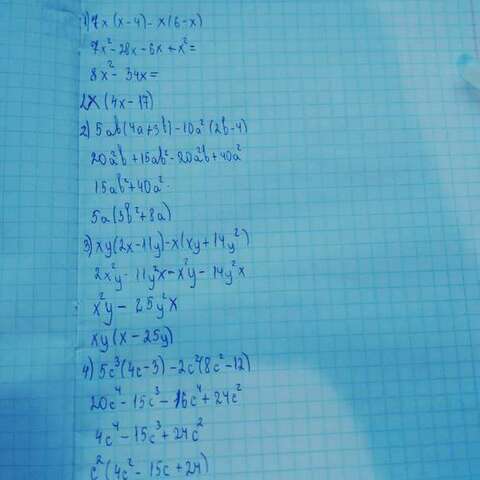 1) 7x(x-4)-x(6-x)
7x²-28x-6x+x²=
8x²-34x=
2x(4x-17)
2) 5ab(4a+3b)-10a²(2b-4)
20a²b+15ab²-20a²b+40a²
15ab²+40a²
5a(3b²+8a)
3) xy(2x-11y)-x(xy+14y²)
2x²y-11y²x-x²y-14y²x
x²y-25y²x
xy(x-25y)
4) 5c³(4c-3)-2c²(8c²-12)
20c⁴-15c³-16c⁴+24c²
4c⁴-15c³+24c²
c²(4c²-15c+24)